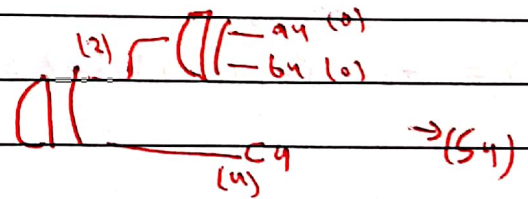 a4 (0)
(2)
b4 (0)
C4
(4)
→(S4)